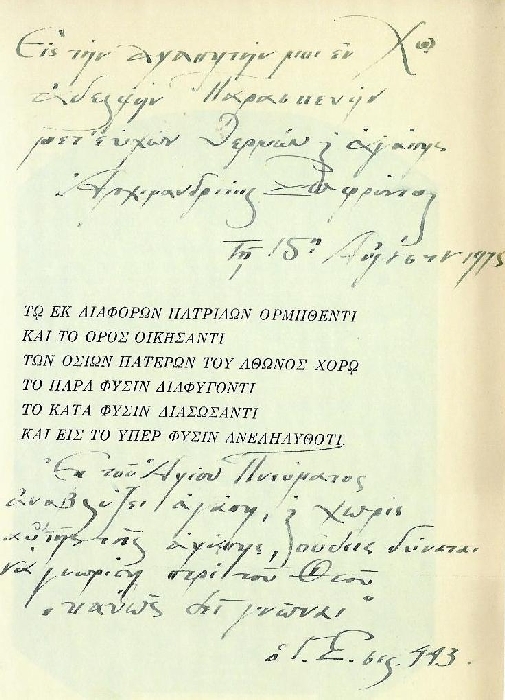 Εἰς τὴν ἀγαπητήν μοι ἐν Χῷ
ἀδελφὴν Παρασκευὴν
μετ' εὐχῶν θερμῶν & ἀγάπης
Ἀρχιμανδρίτης Σωφρόνιος
Τῇ 15ῃ Αὐγούστου 1975
ΤΩ ΕΚ ΔΙΑΦΟΡΩΝ ΠΑΤΡΙΔΩΝ ΟΡΜΗΘΕΝΤΙ
ΚΑΙ ΤΟ ΟΡΟΣ ΟΙΚΗΣΑΝΤΙ
ΤΩΝ ΟΣΙΩΝ ΠΑΤΕΡΩΝ ΤΟΥ ΑΘΩΝΟΣ ΧΟΡΩ
ΤΟ ΠΑΡΑ ΦΥΣΙΝ ΔΙΑΦΥΓΟΝΤΙ
ΤΟ ΚΑΤΑ ΦΥΣΙΝ ΔΙΑΣΩΣΑΝΤΙ
ΚΑΙ ΕΙΣ ΤΟ ΥΠΕΡ ΦΥΣΙΝ ΑΝΕΛΗΛΥΘΟΤΙ
Ἐκ τοῦ Ἁγίου Πνεύματος
ἀναβλύζει ἀγάπη, & χωρὶς
αὐτῆς τῆς ἀγάπης, οὐδεὶς δύναται
νὰ γνωρίσῃ περὶ τοῦ Θεοῦ
"καθὼς δεῖ γνῶναι"
ὁ Γ. Σ. σελ. 443.